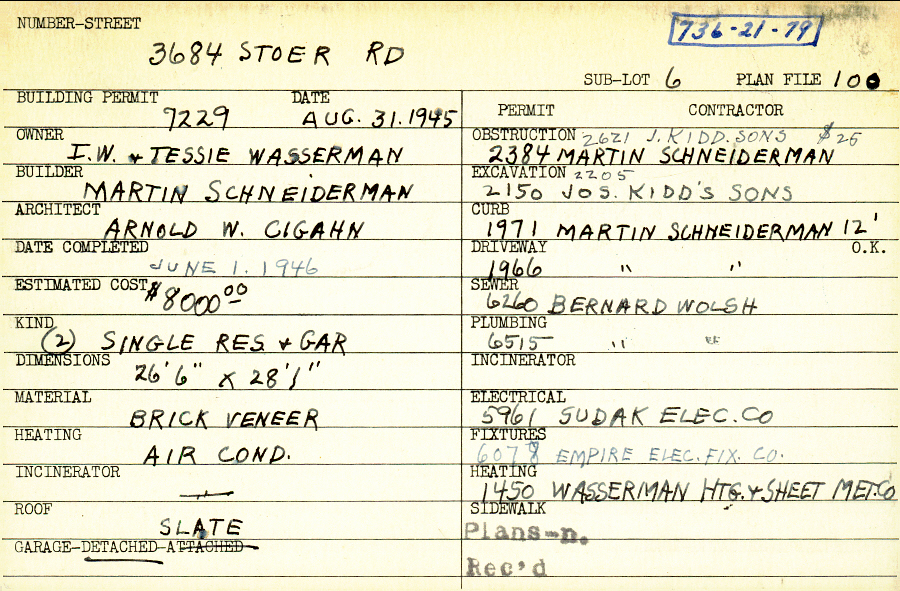 NUMBER-STREET
736-21-79
3684 STOER RD
SUB-LOT 6 PLAN FILE 100
BUILDING PERMIT DATE
7229 AUG. 31. 1945
OWNER
I.W. + TESSIE WASSERMAN
BUILDER
MARTIN SCHNEIDERMAN
ARCHITECT
ARNOLD W. CIGAHN
DATE COMPLETED
JUNE 1. 1946
ESTIMATED COST
$8000.00
KIND
(2) SINGLE RES. + GAR
DIMENSIONS
26'6" X 28'1"
MATERIAL
BRICK VENEER
HEATING
AIR COND.
INCINERATOR
—
ROOF
SLATE
GARAGE-DETACHED-ATTACHED
PERMIT CONTRACTOR
OBSTRUCTION 2621 J. KIDD. SONS $25
2384 MARTIN SCHNEIDERMAN
EXCAVATION 2205
2150 JOS. KIDD'S SONS
CURB
1971 MARTIN SCHNEIDERMAN 12'
DRIVEWAY O.K.
1966 " "
SEWER
6260 BERNARD WOLSH
PLUMBING
6515 " "
INCINERATOR
ELECTRICAL
5961 SUDAK ELEC. CO
FIXTURES
6078 EMPIRE ELEC. FIX. CO.
HEATING
1450 WASSERMAN HTG. + SHEET MET. CO
SIDEWALK
Plans-n.
Rec'd